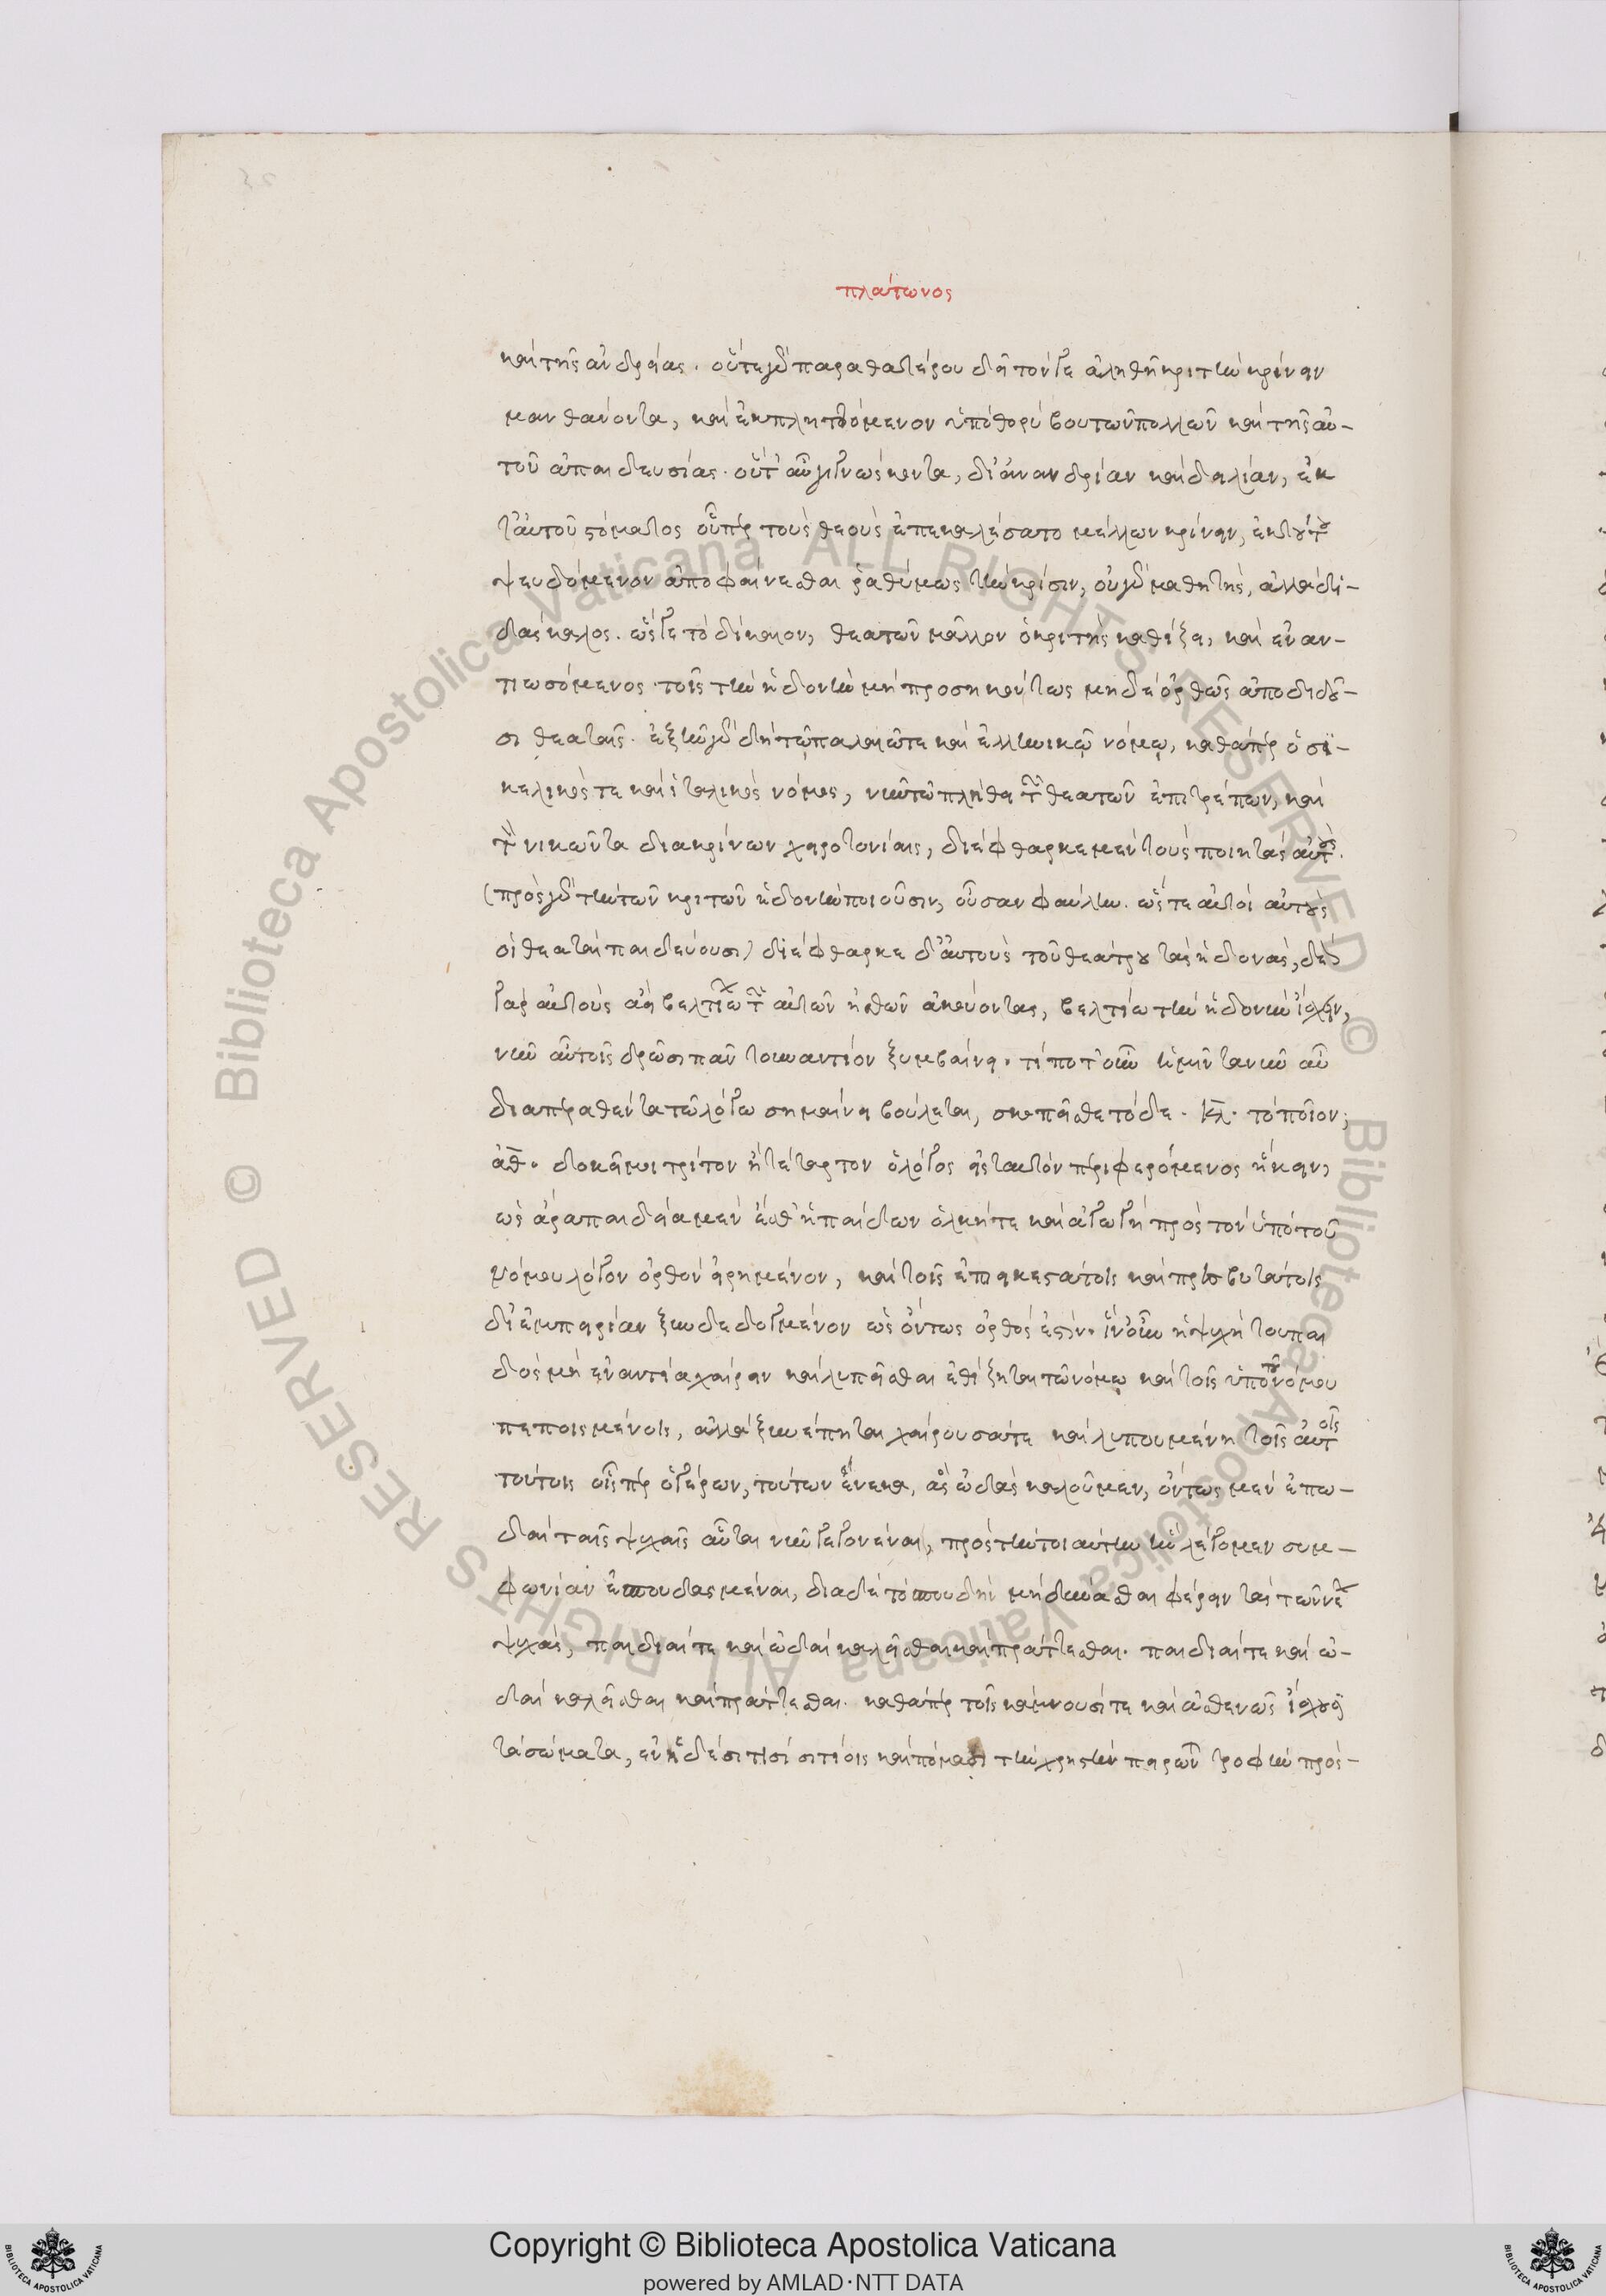 πλάτωνος
καὶ τῆς ἀνδρείας. οὔτε γὰρ παρὰ θατέρου δεῖ τόν γε ἀληθῆ κριτὴν κρίνειν
μανθάνοντα, καὶ ἐκπληττόμενον ὑπὸ θορύβου τῶν πολλῶν καὶ τῆς αὑ-
τοῦ ἀπαιδευσίας. οὔτ' αὖ γιγνώσκοντα, δι' ἀνανδρίαν καὶ δειλίαν, ἐκ
ταὐτοῦ στόματος οὗπερ τοὺς θεοὺς ἐπεκαλέσατο μέλλων κρίνειν, ἐκ τούτου
ψευδόμενον ἀποφαίνεσθαι ῥαθύμως τὴν κρίσιν, οὐ γὰρ μαθητὴς, ἀλλὰ δι-
δάσκαλος. ὥς γε τὸ δίκαιον, θεατῶν μᾶλλον ὁ κριτὴς καθίζει, καὶ ἐναν-
τιωσόμενος τοῖς τὴν ἡδονὴν μὴ προσηκόντως μηδὲ ὀρθῶς ἀποδιδοῦ-
σι θεαταῖς. ἐξῆν γὰρ δὴ τῷ παλαιῷ τε καὶ ἑλληνικῷ νόμῳ, καθάπερ ὁ σι-
κελικός τε καὶ ἰταλικὸς νόμος, νῦν τῷ πλήθει τῶν θεατῶν ἐπιτρέπων, καὶ
τὸν νικῶντα διακρίνων χειροτονίαις, διέφθαρκε μὲν τοὺς ποιητὰς αὐτούς.
(πρὸς γὰρ τὴν τῶν κριτῶν ἡδονὴν ποιοῦσιν, οὖσαν φαύλην. ὥστε αὐτοὶ αὐτοὺς
οἱ θεαταὶ παιδεύουσι) διέφθαρκε δ' αὐτοὺς τοῦ θεάτρου τὰς ἡδονάς, δέον
γὰρ αὐτοὺς ἀεὶ βελτίω τῶν αὐτῶν ἠθῶν ἀκούοντας, βελτίω τὴν ἡδονὴν ἴσχειν,
νῦν αὐτοῖς δρῶσι πᾶν τοὐναντίον ξυμβαίνει. τί ποτ' οὖν ἡμῖν τὰ νῦν αὖ
διαπεραθέντα τῷ λόγῳ σημαίνειν βούλεται, σκοπεῖσθε τόδε. Κλ. τὸ ποῖον;
ἀθ. δοκεῖ μοι τρίτον ἢ τέταρτον ὁ λόγος εἰς ταὐτὸν περιφερόμενος ἥκειν,
ὡς ἄρα παιδεία μὲν ἔσθ' ἡ παίδων ὁλκή τε καὶ ἀγωγὴ πρὸς τὸν ὑπὸ τοῦ
νόμου λόγον ὀρθὸν εἰρημένον, καὶ τοῖς ἐπιεικεστάτοις καὶ πρεσβυτάτοις
δι' ἐμπειρίαν ξυνδεδογμένον ὡς ὄντως ὀρθός ἐστιν. ἵν' οὖν ἡ ψυχὴ τοῦ παι
δὸς μὴ ἐναντία χαίρειν καὶ λυπεῖσθαι ἐθίζηται τῷ νόμῳ καὶ τοῖς ὑπὸ τοῦ νόμου
πεπεισμένοις, ἀλλὰ ξυνέπηται χαίρουσά τε καὶ λυπουμένη τοῖς αὐτοῖς
τούτοις οἷσπερ ὁ γέρων, τούτων ἕνεκα, ἃς ᾠδὰς καλοῦμεν, ὄντως μὲν ἐπῳ-
δαὶ ταῖς ψυχαῖς αὗται νῦν γεγονέναι, πρὸς τὴν τοιαύτην ἣν λέγομεν συμ-
φωνίαν ἐσπουδασμέναι, διὰ δὲ τὸ σπουδὴν μὴ δύνασθαι φέρειν τὰς τῶν νέων
ψυχάς, παιδιαί τε καὶ ᾠδαὶ καλεῖσθαι καὶ πράττεσθαι. παιδιαί τε καὶ ᾠ-
δαὶ καλεῖσθαι καὶ πράττεσθαι. καθάπερ τοῖς κάμνουσί τε καὶ ἀσθενῶς ἴσχουσι
τὰ σώματα, ἐν ἡδέσι τισὶ σιτίοις καὶ πόμασι τὴν χρηστὴν πειρῶνται τροφὴν προσ-
Copyright © Biblioteca Apostolica Vaticana
powered by AMLAD·NTT DATA